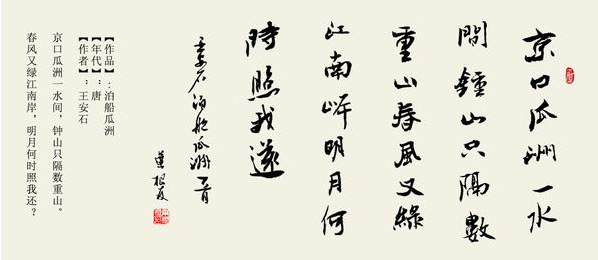 京口瓜洲一水
間鍾山只隔數
重山春風又緑
江南岸明月何
時照我還
王安石泊船瓜洲一首
【作品】:泊船瓜洲
【年代】:唐
【作者】:王安石
京口瓜洲一水间，钟山只隔数重山。
春风又绿江南岸，明月何时照我还？